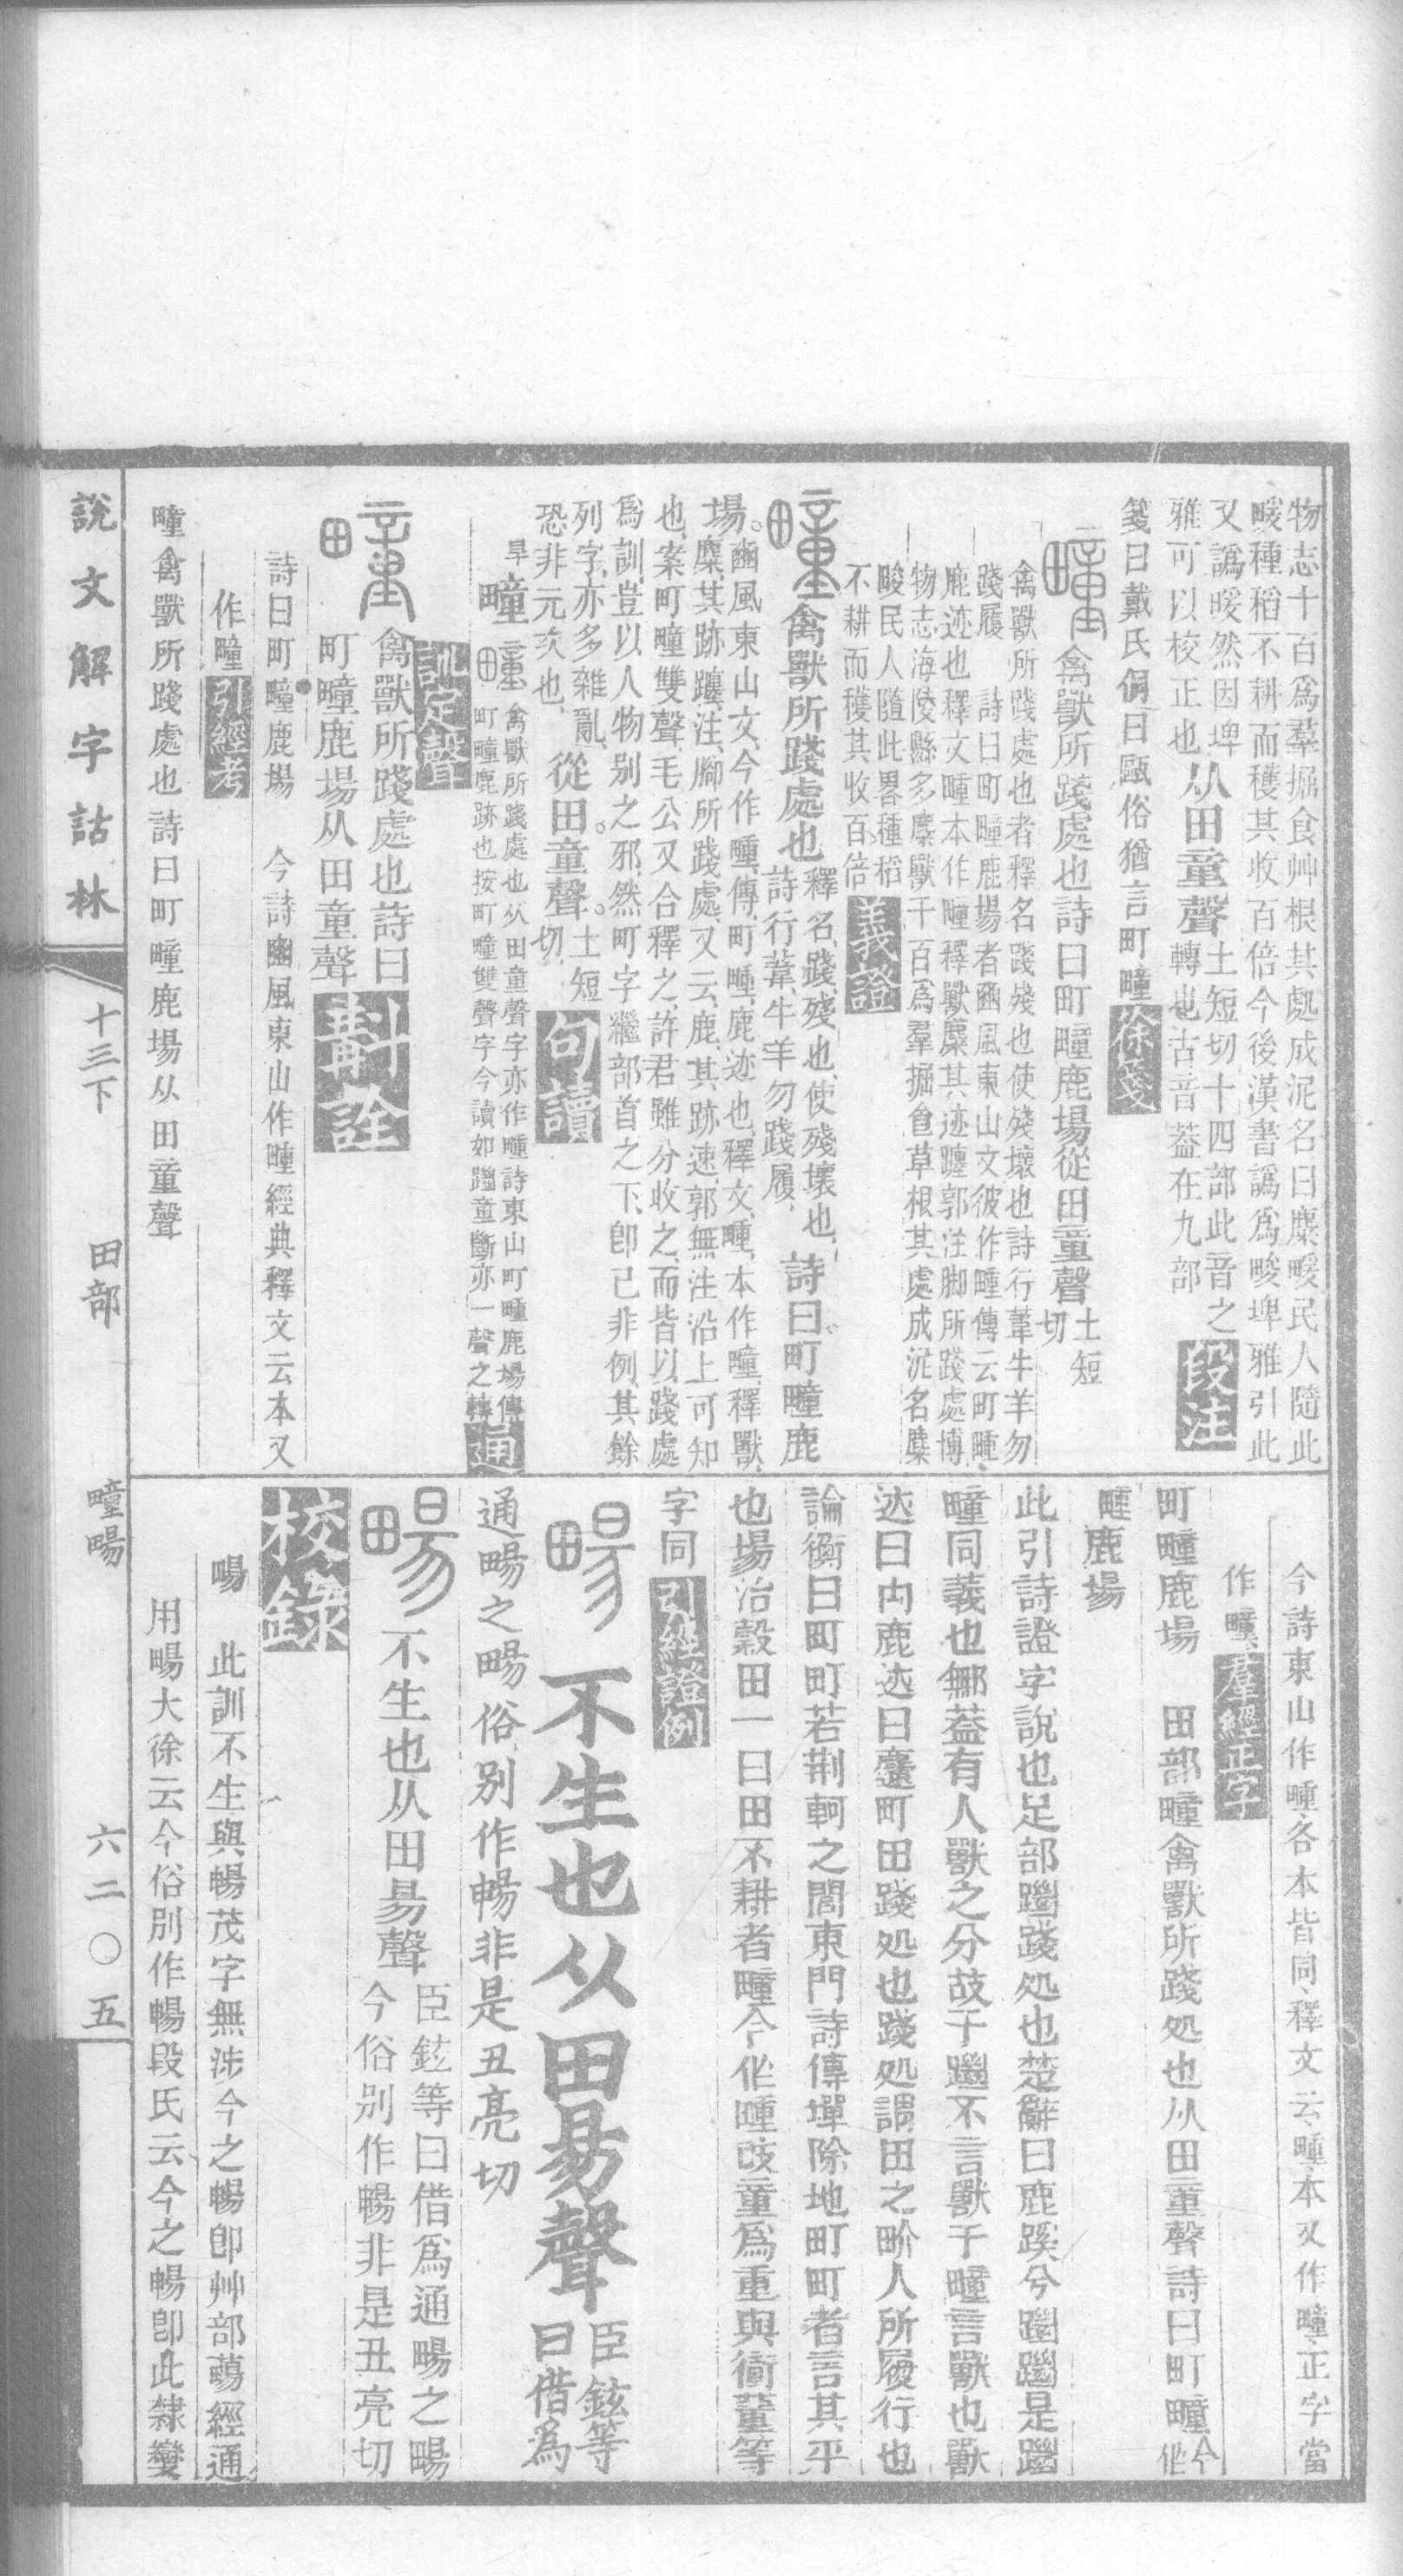 物志十百爲羣掘食艸根其處成泥名曰麋畯民人隨此
畯種稻不耕而穫其收百倍今後漢書譌爲畯埤雅引此
又譌暖然因埤
雅可以校正也
从田童聲
土短切十四部此音之
轉也古音葢在九部
段注
箋曰戴氏侗曰甌俗猶言町疃
徐箋
疃禽獸所踐處也詩曰町疃鹿場從田童聲
土短
切
禽獸所踐處也者釋名踐殘也使殘壞也詩行葦牛羊勿
踐履 詩曰町疃鹿場者豳風東山文彼作畽傳云町畽
鹿迹也釋文畽本作疃釋獸麋其迹躔郭注脚所踐處博
物志海陵縣多麋獸千百爲羣掘食草根其處成泥名麋
畯民人隨此畧種稻
不耕而穫其收百倍
義證
疃禽獸所踐處也
釋名踐殘也使殘壞也
詩行葦牛羊勿踐履
詩曰町疃鹿
場
豳風東山文今作畽傳町畽鹿迹也釋文畽本作疃釋獸
麋其跡躔注腳所踐處又云鹿其跡速郭無注沿上可知
也案町疃雙聲毛公又合釋之許君雖分收之而皆以踐處
爲訓豈以人物别之邪然町字繼部首之下卽已非例其餘
列字亦多雜亂
恐非元次也
從田童聲
土短
切
句讀
疃 疃
禽獸所踐處也从田童聲字亦作畽詩東山町畽鹿場傳
町疃鹿跡也按町疃雙聲字今讀如躖童斷亦一聲之轉
通訓定聲
疃禽獸所踐處也詩曰
町疃鹿場从田童聲
斠詮
詩曰町疃鹿場 今詩豳風東山作畽經典釋文云本又
作疃
引經考
疃禽獸所踐處也詩曰町疃鹿場从田童聲
今詩東山作畽各本皆同釋文云畽本又作疃正字當
作疃
羣經正字
町疃鹿場 田部疃禽獸所踐処也从田童聲詩曰町疃今作
畽鹿場
此引詩證字說也足部躖踐処也楚辭曰鹿蹊兮躖躖是躖
疃同義也鄦葢有人獸之分故于躖不言獸于疃言獸也獸
迒曰内鹿迒曰躔町田踐処也踐処謂田之畍人所履行也
論衡曰町町若荆軻之閭東門詩傳墠除地町町者言其平
也場治穀田一曰田不耕者疃今作畽改童爲重與衝董等
字同
引經證例
畼不生也从田昜聲
臣鉉等
曰借爲
通畼之畼俗别作暢非是丑亮切
畼不生也从田昜聲
臣鉉等曰借爲通畼之畼
今俗别作暢非是丑亮切
校錄
畼 此訓不生與暢茂字無涉今之暢卽艸部䔥經通
用畼大徐云今俗别作暢段氏云今之暢卽此隸變
說文解字詁林
十三下 田部 疃畼 六二〇五